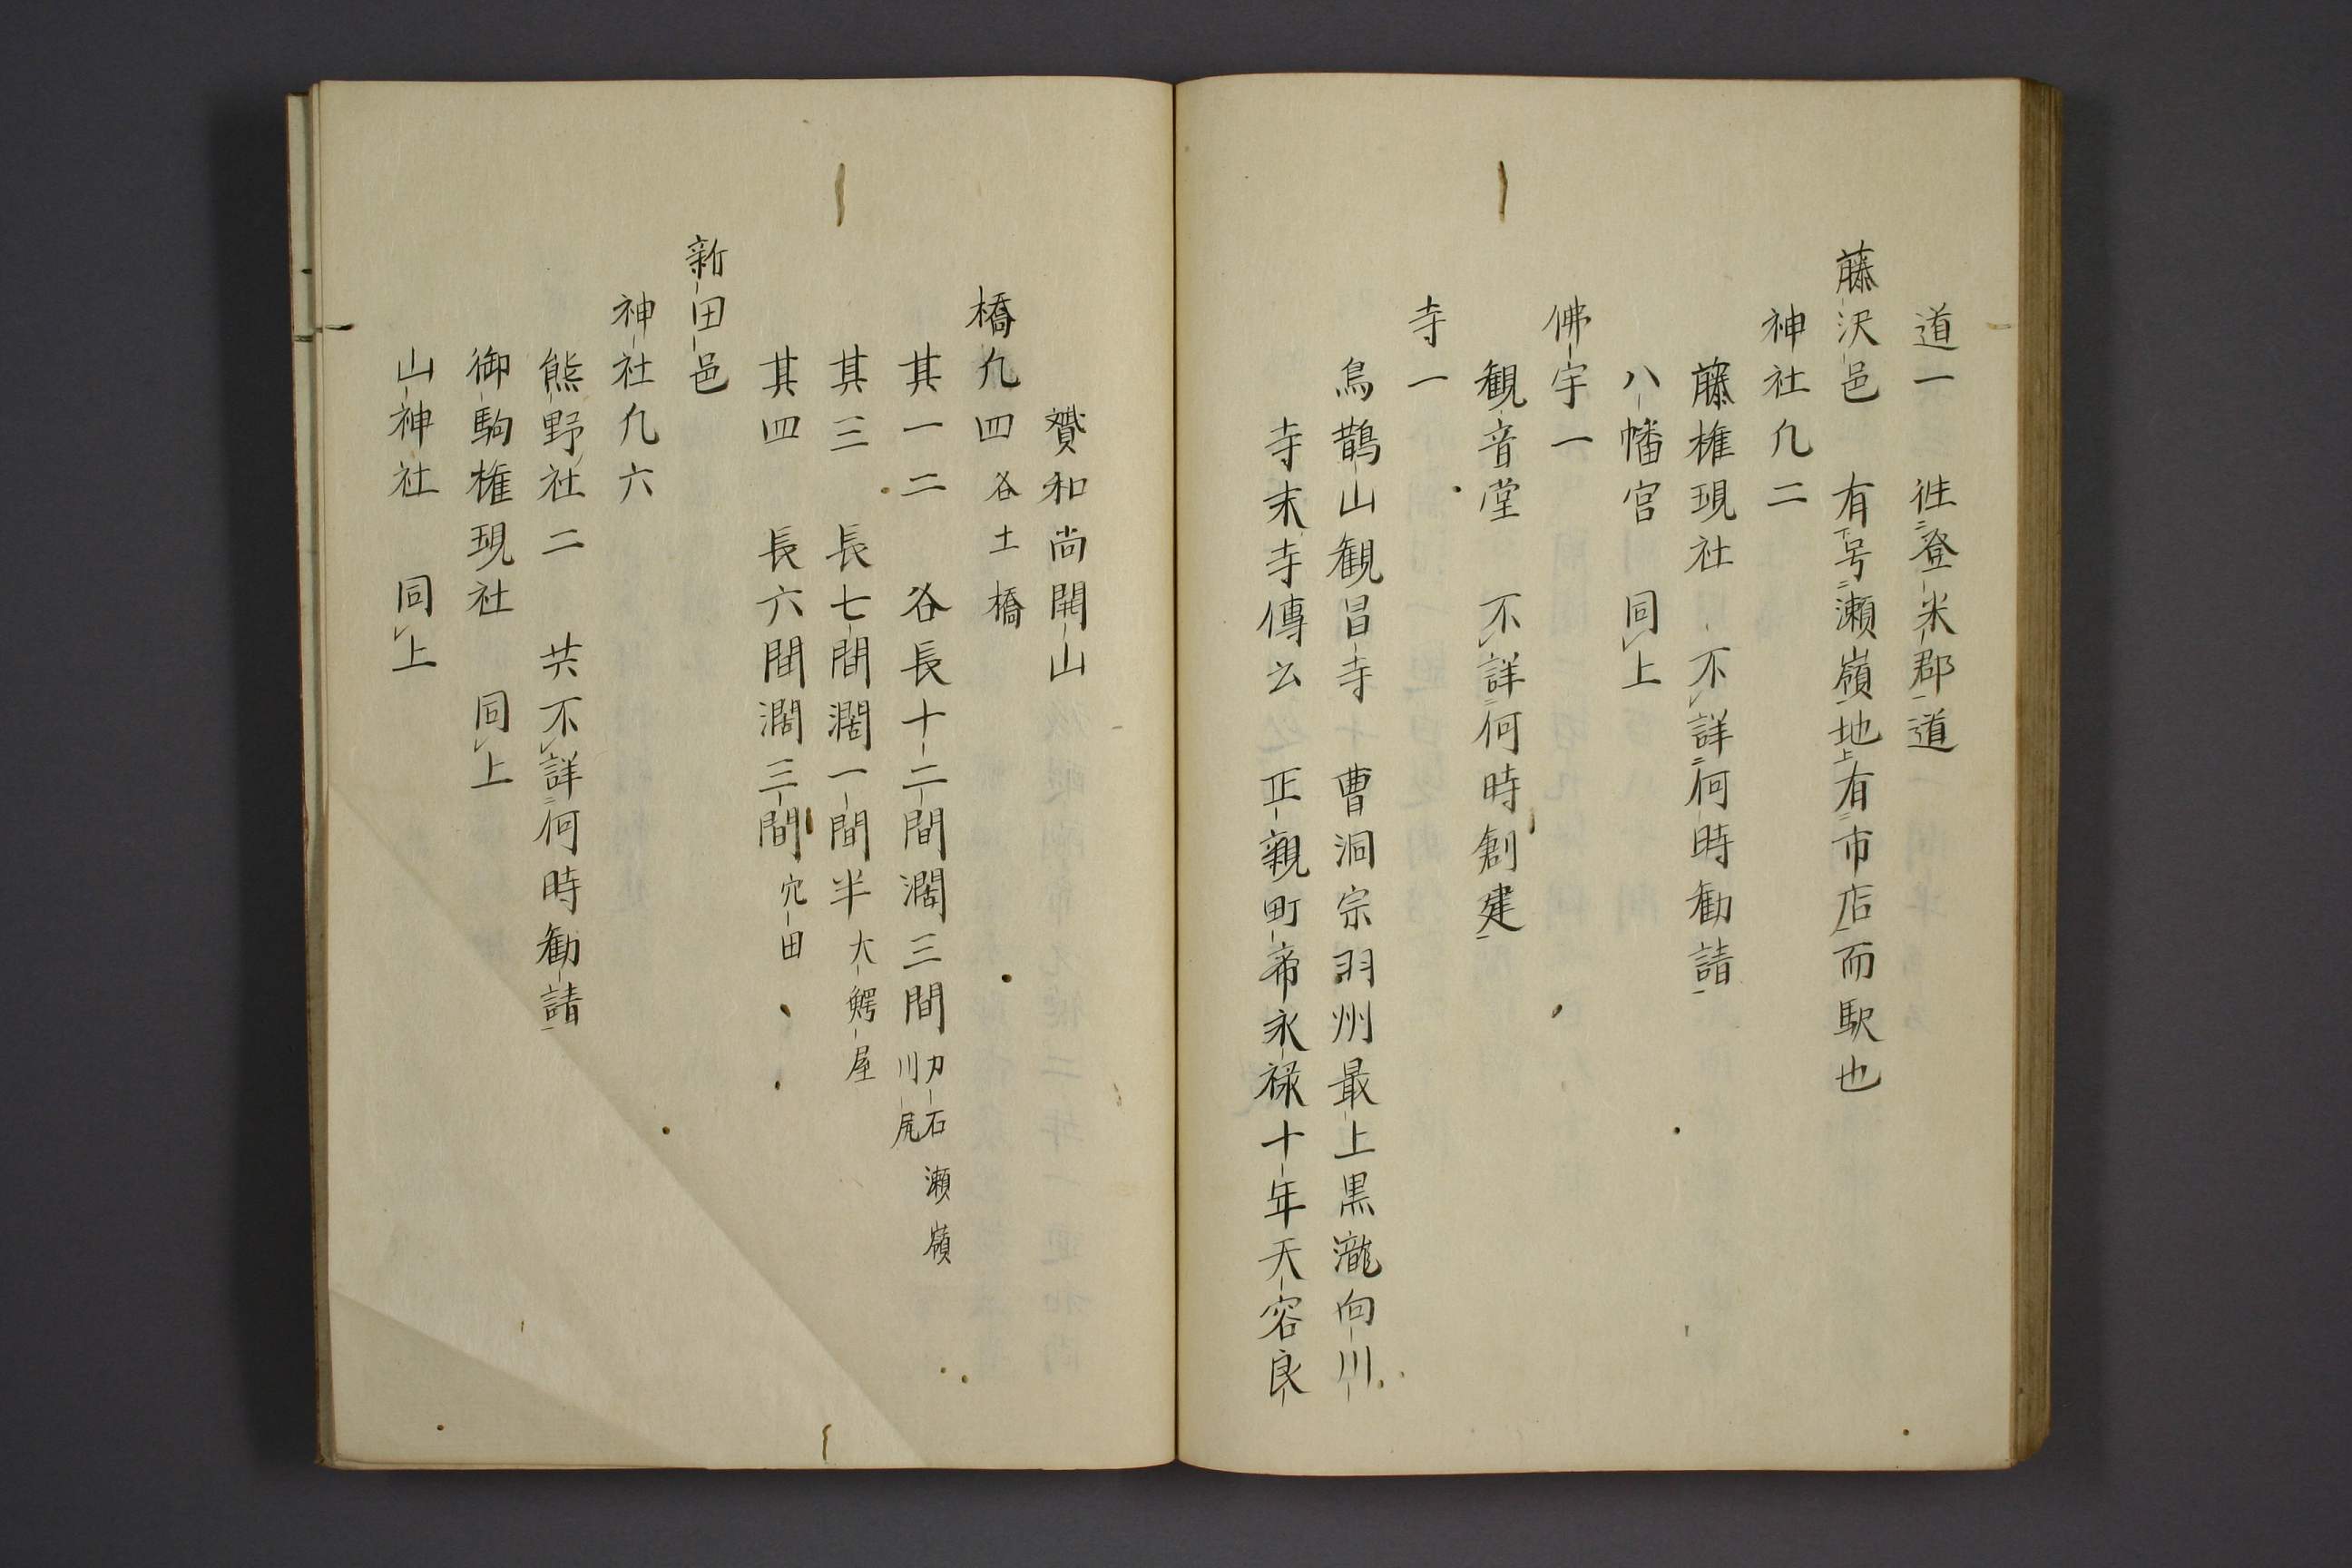 道一　往登米郡道
藤沢邑　有号瀬嶺地有市店而駅也
神社凢二
藤権現社　不詳何時勧請
八幡宮　同上
佛宇一
観音堂　不詳何時創建
寺一
烏鵲山観昌寺　曹洞宗羽州最上黒瀧向川
寺末寺傳云　正親町帝永禄十年天容良
贇和尚開山
橋凢四　各土橋
其一二　各長十二間濶三間　刀石　瀬嶺　川尻
其三　長七間濶一間半　大鰐屋
其四　長六間濶三間　穴田
新田邑
神社凢六
熊野社二　共不詳何時勧請
御駒権現社　同上
山神社　同上